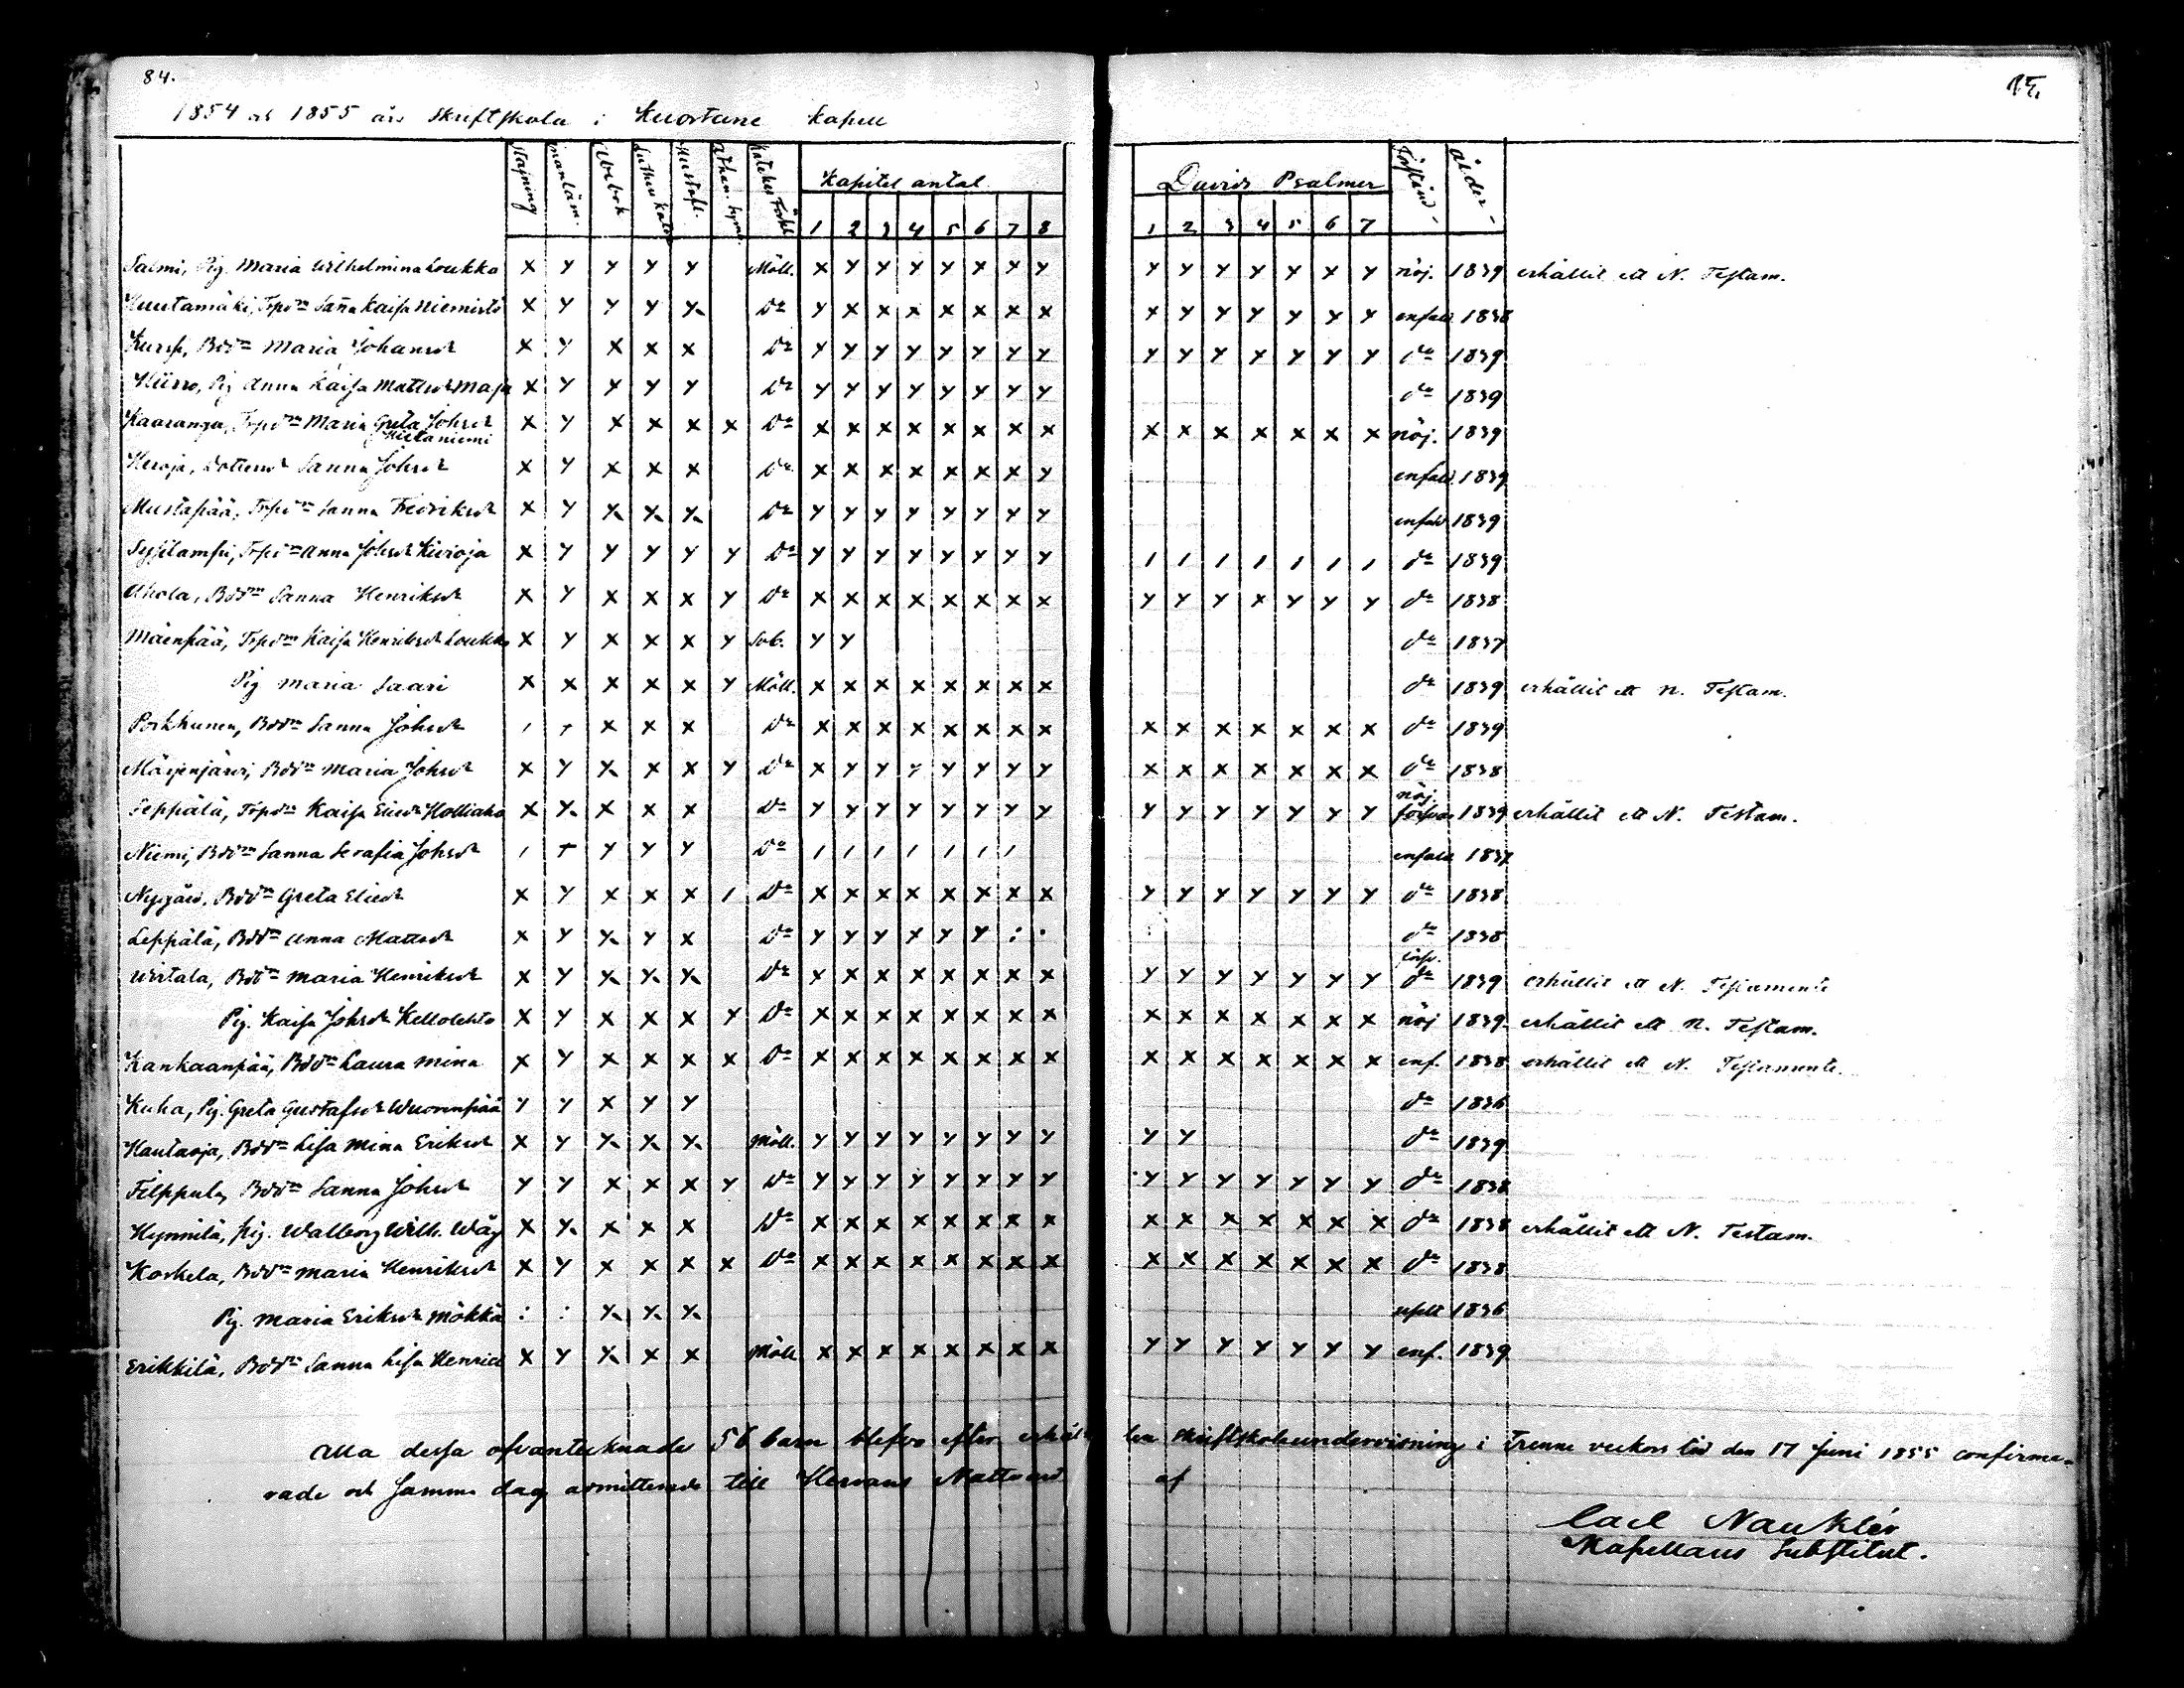 84.
1854 och 1855 års skriftskola i Kuortane Kapell
stafning
innanläsn.
Abcbok
Lutheri kat.
Hustafl.
Athan. symb.
Kateket. Förkl.
Kapitel antal
1 2 3 4 5 6 7 8
Davids Psalmer
1 2 3 4 5 6 7
Förstånd
ålder
Salmi, Pig. Maria Wilhelmina Loukko x y y y y Möll. x y y y y x y y y y y y y x y nöj. 1839 erhållit ett N. Testam.
Huutamäki, Trpdr Sanna Kaisa Niemistö x y y y x Do y x x x x x x x x y y y y y y enfald. 1838
Kursp, Bddr Maria Johansdr x y x x x Do y y y y y y y y y y y y y y y do 1839
Hiiro, Pig Anna Kaisa Mattsdr Maja x y y y y Do y y y y y y y y do 1839
Kaaranga, Trpdr Maria Greta Johsdr Hietaniemi x y x x x x Do x x x x x x x x x x x x x x x nöj. 1839
Keroja, Dotterdr Sanna Johsdr x y x x x Do x x x x x x x y enfald. 1839
Mustapää, Trpdr Sanna Fredriksdr x y x x x Do y y y y y y y y enfald 1839
Syjtlampi, Trpdr Anna Johsdr Kivioja x y y y y y Do y y y y y y y y / / / / / / / do 1839
Ahola, Bddr Sanna Henriksdr x y x x x y Do x x x x x x x x y y y x y y y do 1838
Mäenpää, Trpdr Kaisa Henriksdr Loukko x y x x x y Sveb. y y do 1837
Pig Maria Saari x x x x x y Möll. x x x x x x x x do 1839 erhållit ett N. Testam.
Porkhunen, Bddr Sanna Johsdr / + x x x Do x x x x x x x x x x x x x x x do 1839
Märjenjärvi, Bddr Maria Johsdr x y x x x y Do x y y y y y y y x x x x x x x do 1838
Seppälä, Trpdr Kaisa Eliedr Holliaho x y x x x Do y y y y y y y y y y y y y y y nöj. försvar. 1839 erhållit ett N. Testam.
Niemi, Bddr Sanna Serafia Johsdr / + y y y Do / / / / / / / enfald 1837
Nygård, Bddr Greta Eliedr x y x x x / Do x x x x x x x x y y y y y y y do 1838
Leppälä, Bddr Anna Mattsdr x y x y x Do y y y x y y : · do 1838
Wirtala, Bddr Maria Henriksdr x y x x x Do x x x x x x x x y y y y y y y förv. do 1839 erhållit ett N. Testamente
Pig. Kaisa Johsdr Kellolehto x y x x x y Do x x x x x x x x x x x x x x x nöj 1839. erhållit ett N. Testam.
Kankaanpää, Bddr Laura Mina x y x x x x Do x x x x x x x x x x x x x x x enf. 1838 erhållit ett N. Testamente.
Kuha, Pig. Greta Gustafsdr Wuorenpää y y x y y do 1836
Hautaoja, Bddr Lisa Mina Eriksdr x y x x x Möll. y y y y y y y y y y do 1839
Filppula, Bddr Sanna Johsdr y y x x x y Do y y y y y y y y y y y y y y y do 1838
Hynnilä, Pig. Walborg Wilh. Wäg x x x x x Do x x x x x x x x x x x x x x x do 1838 erhållit ett N. Testam.
Koskela, Bddr Maria Henriksdr x y x x x x Do x x x x x x x x x x x x x x x do 1838
Pig. Maria Eriksdr Mökkä : : x x x 1836
Erikkilä, Bddr Sanna Lisa Henricsdr x y x x x Möll x x x x x x x x y y y y y y y enf. 1839
Alla dessa ofvantecknade 56 barn blefvo efter erhållen skriftskoleundervisning i trenne veckors tid den 17 Juni 1855 confirme-
rade och samma dag admitterade till Herrans Nattvard af
Carl Nauklér
Kapellans Substitut.